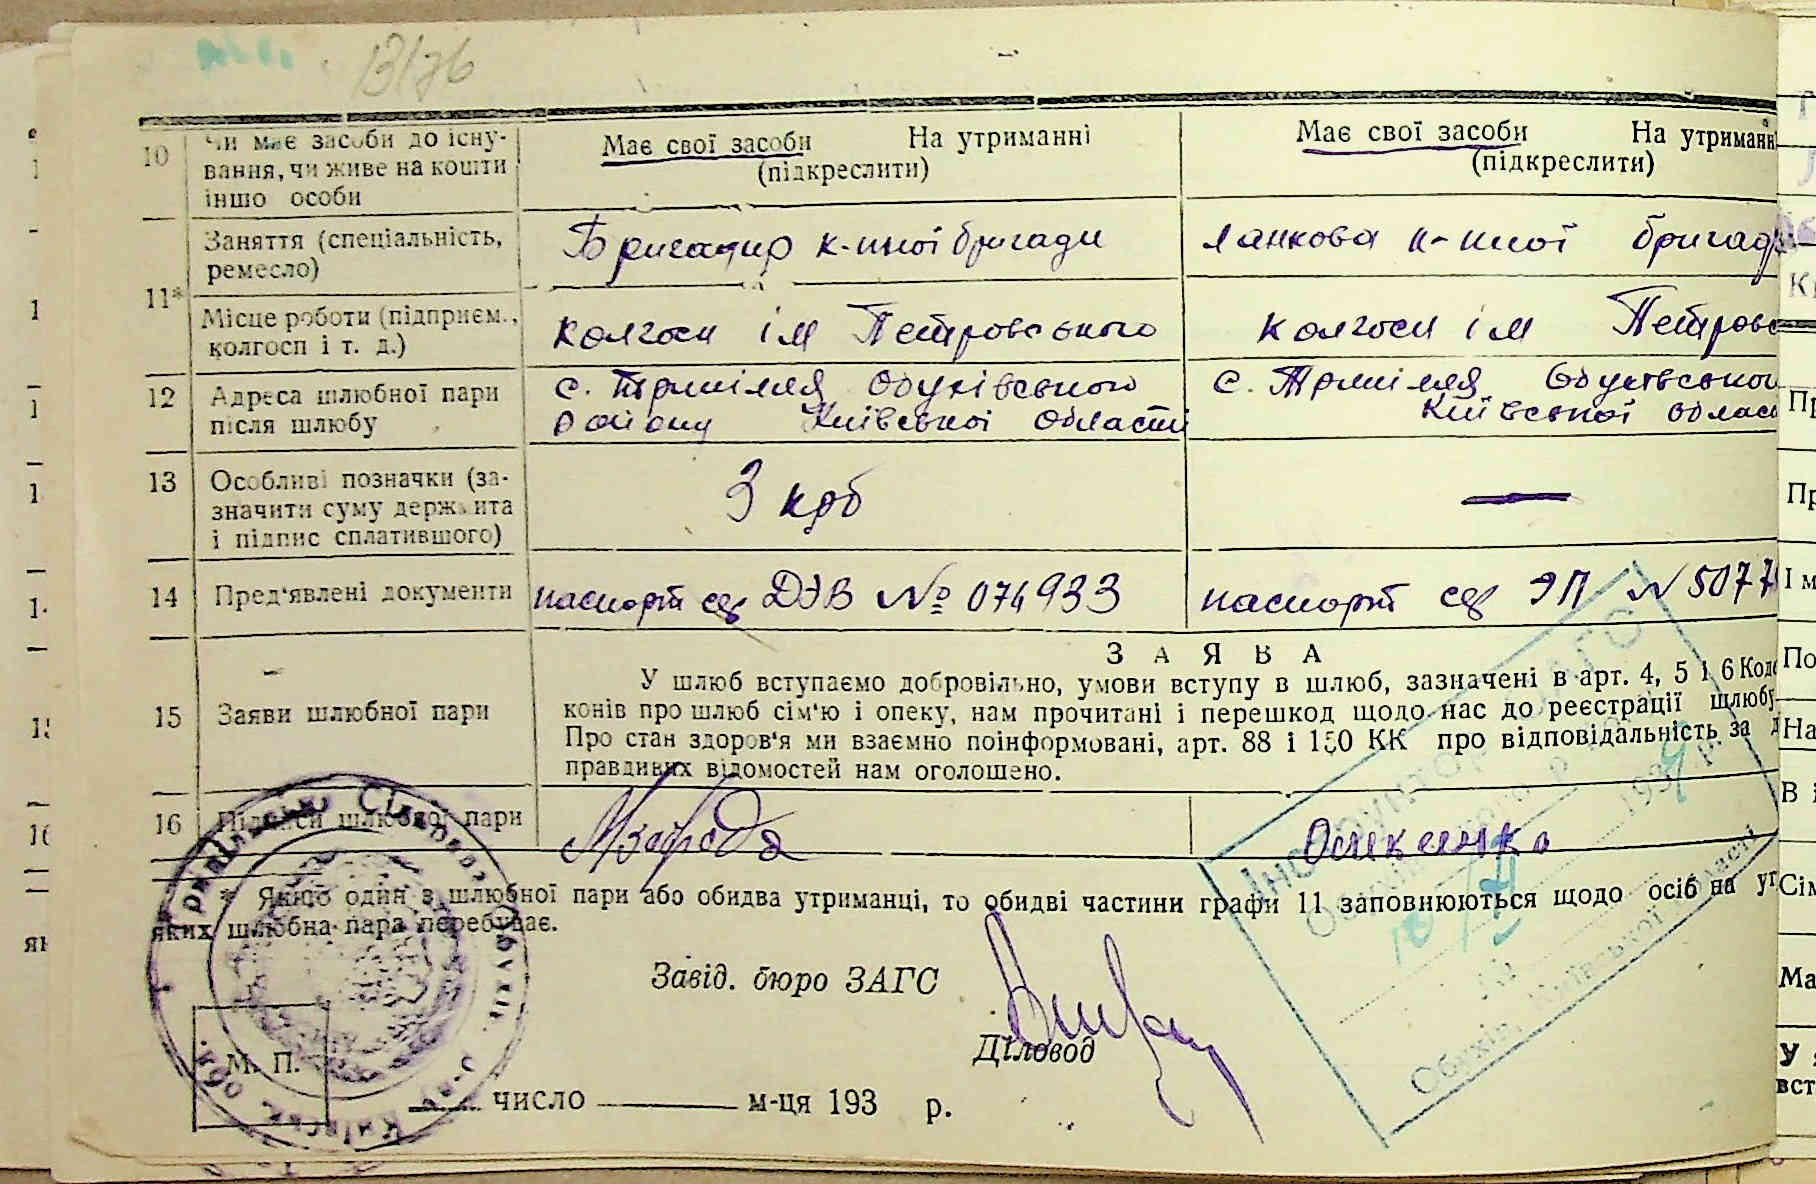 13/76
10 Чи має засоби до існу-
вання, чи живе на кошти
іншо особи
Має свої засоби На утриманні
(підкреслити)
Має свої засоби На утриманн
(підкреслити)
11*
Заняття (спеціальність,
ремесло)
Бригадир к-нної бригади
Ланкова к-нної бригад
Місце роботи (підприєм.,
колгосп і т. д.)
Колгосп ім Петровського
Колгосп ім Петровс
12 Адреса шлюбної пари
після шлюбу
с. Трипілля Обухівського
району Київської Області
с. Трипілля Обухівсько
Київської Облас
13 Особливі позначки (за-
значити суму держмита
і підпис сплатившого)
3 крб
14 Пред'явлені документи
паспорт сер ДЭВ № 074933
паспорт сер ЭП N 5077
15 Заяви шлюбної пари
ЗАЯВА
У шлюб вступаємо добровільно, умови вступу в шлюб, зазначені в арт. 4, 5 і 6 Коде
конів про шлюб сім'ю і опеку, нам прочитані і перешкод щодо нас до реєстрації шлюбу
Про стан здоров'я ми взаємно поінформовані, арт. 88 і 150 КК про відповідальність за
правдивих відомостей нам оголошено.
16 Підписи шлюбної пари
* Якщо один з шлюбної пари або обидва утриманці, то обидві частини графи 11 заповнюються щодо осіб на ут
яких шлюбна пара перебуває.
Завід. бюро ЗАГС
Діловод
М. П.
число м-ця 193 р.
Інспектор ЗАГС
1939 р.
Обухів, Київської області